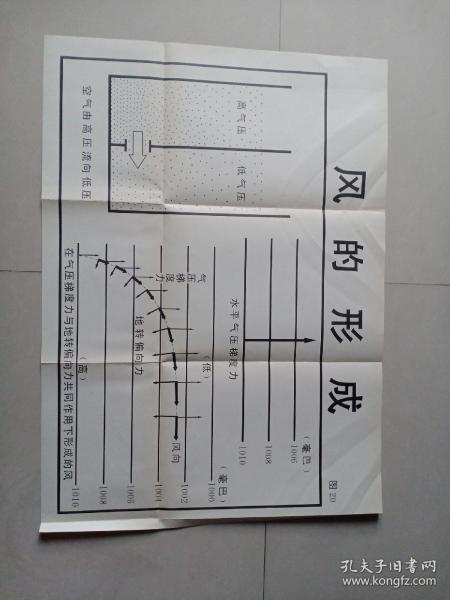 风的形成
图20
高气压
低气压
空气由高压流向低压
(毫巴)
1006
1008
1010
水平气压梯度力
(毫巴)
1000
1002
1004
1006
1008
1010
(低)
(高)
气压梯度力
地转偏向力
风向
在气压梯度力与地转偏向力共同作用下形成的风
孔夫子旧书网
www.kongfz.com